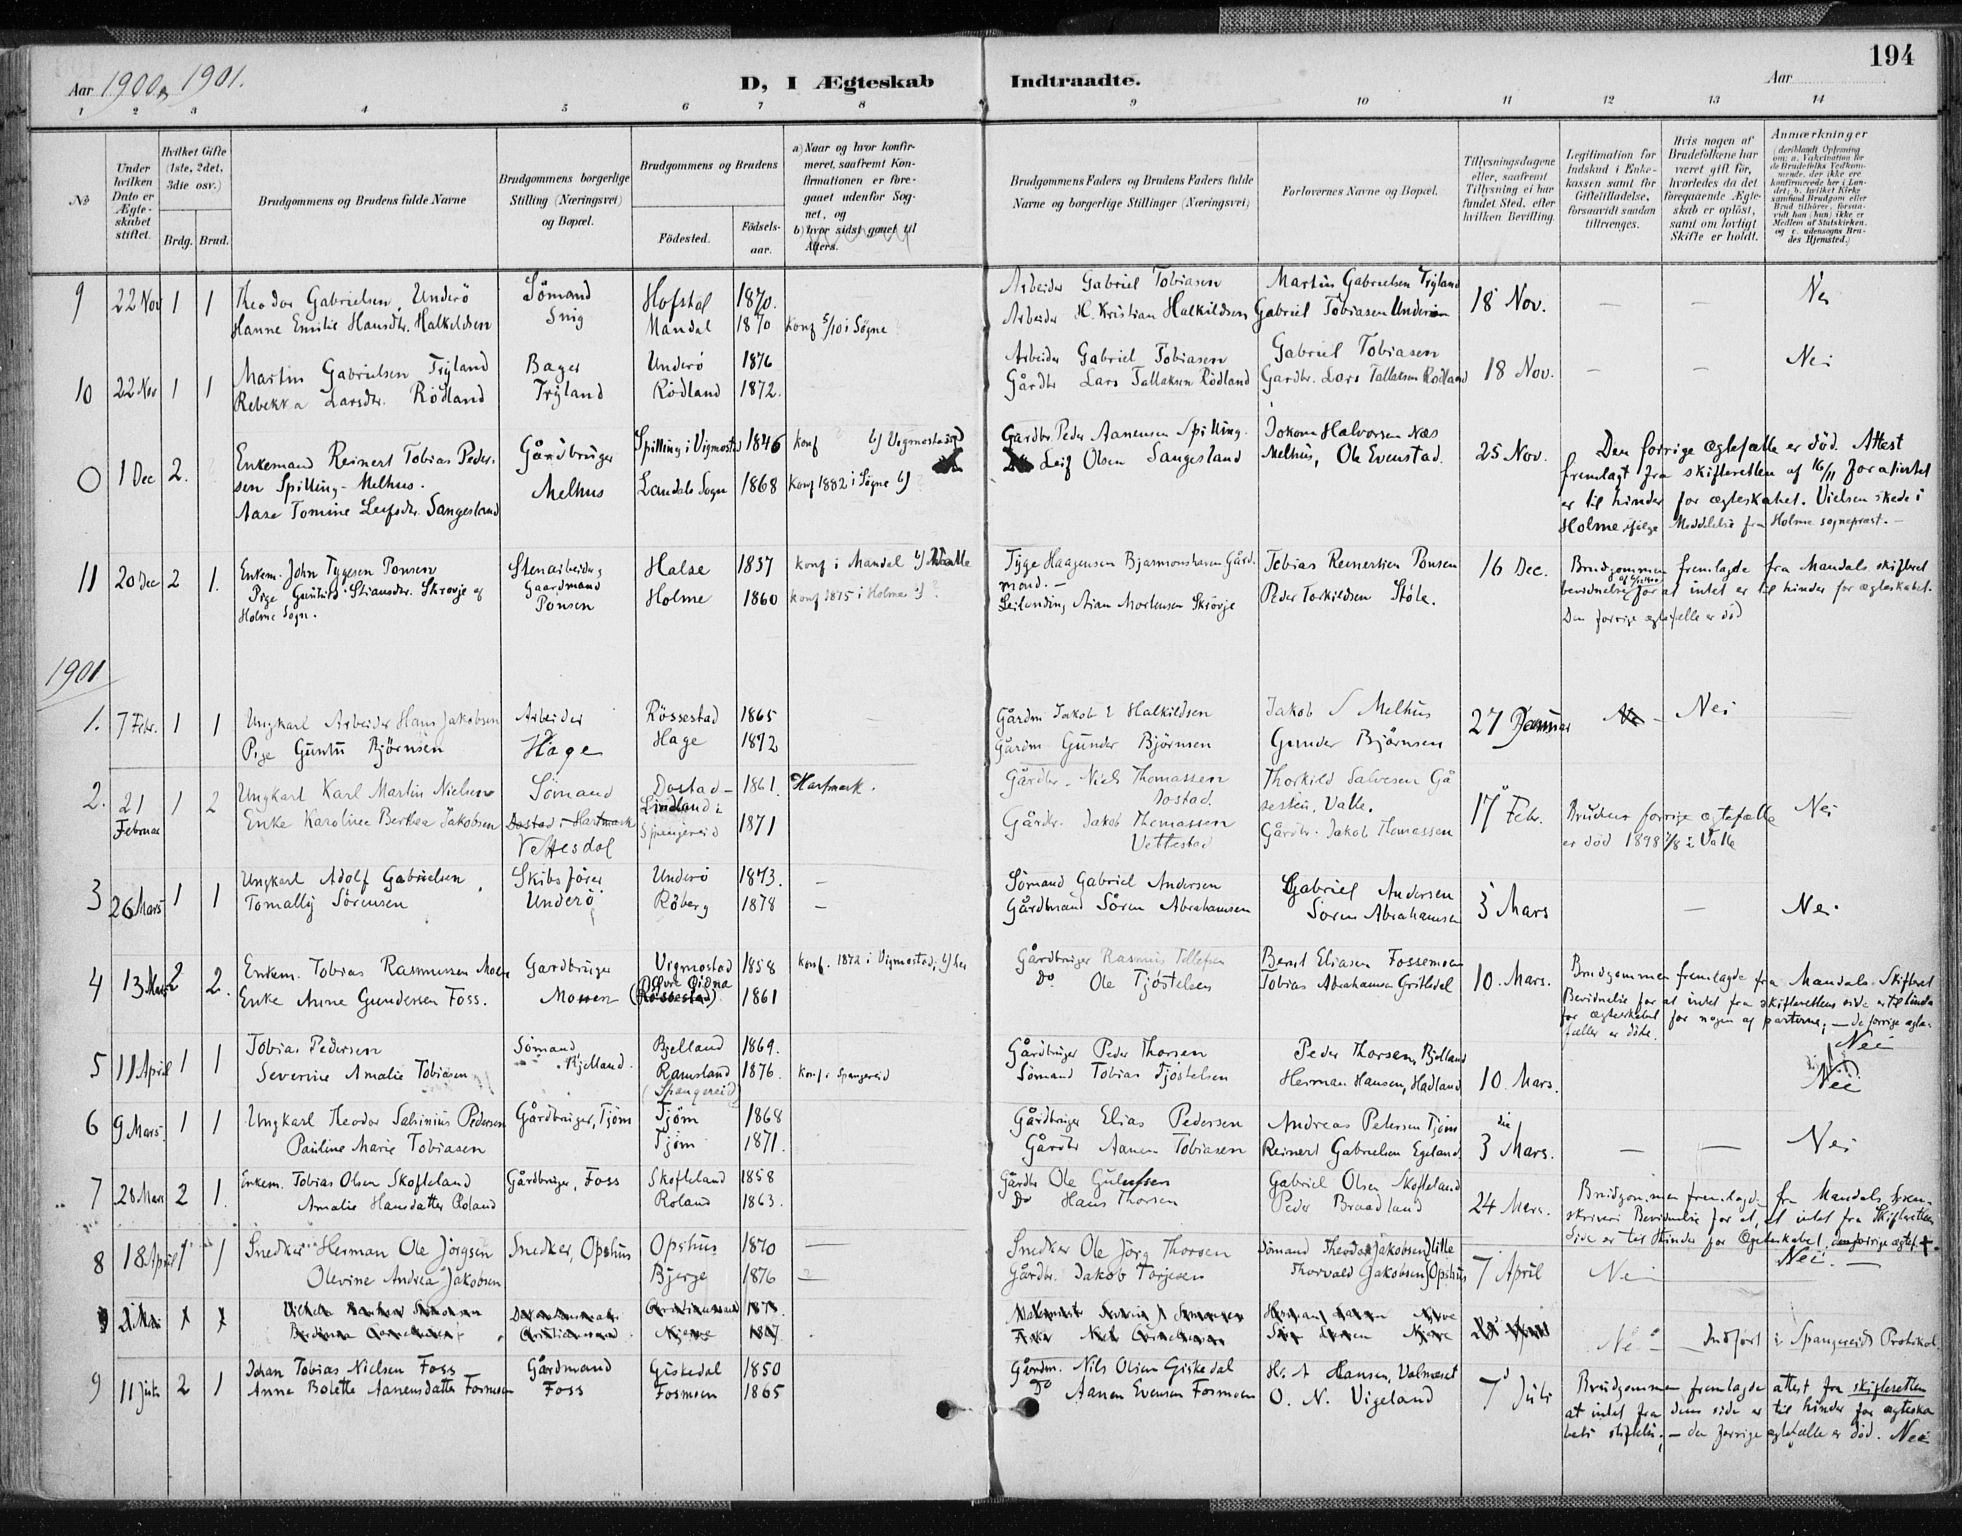 194
Aar 1900 & 1901.
D, I Ægteskab Indtraadte.
Aar
1 2 3 4 5 6 7 8 9 10 11 12 13 14
No
Under hvilken Dato er Ægteskabet stiftet.
Hvilket Gifte (1ste, 2det, 3die osv.)
Brdg. Brud.
Brudgommens og Brudens fulde Navne
Brudgommens borgerlige Stilling (Næringsvei) og Bopæl.
Brudgommens og Brudens
Fødested.
Fødselsaar.
a) Naar og hvor konfirmeret, saafremt Konfirmationen er foregaaet udenfor Sognet, og
b) hvor sidst gaaet til Alters.
Brudgommens Faders og Brudens Faders fulde Navne og borgerlige Stillinger (Næringsvei)
Forlovernes Navne og Bopæl.
Tillysningsdagene eller, saafremt Tillysning ei har fundet Sted, efter hvilken Bevilling.
Legitimation for Indskud i Enkekassen samt for Giftetilladelse, forsaavidt saadan tiltrænges.
Hvis nogen af Brudefolkene har været gift før, hvorledes da det foregaaende Ægteskab er opløst, samt om lovligt Skifte er holdt.
Anmærkninger (deriblandt Oplysning om: a. Vakcination for de Brudefolks Vedkommende, der ikke ere konfirmerede her i Landet; b. hvilket Kirkesamfund Brudgom eller Brud tilhører, forsaavidt han (hun) ikke er Medlem af Statskirken, og c. udensogns Brudes Hjemsted.)
9 22 Nov 1 1 Theodor Gabrielsen Underö Sömand Hofstal 1870. Arbeider Gabriel Tobiasen Martin Gabrielsen Trÿland 18 Nov. — — Nei
Hanne Emilie Hansdtr. Halkildsen Snig Mandal 1870 Konf 5/10 i Søgne Arbeider H. Kristian Halkildsen Gabriel Tobiasen Underö
10 22 Nov 1 1 Martin Gabrielsen Trÿland Bager Underö 1876 Arbeider Gabriel Tobiasen Gabriel Tobiasen 18 Nov. — — Nei
Rebekka Larsdtr. Rödland Trÿland Rödland 1872. Gårdbr Lars Tallaksen Rödland Gardbr. Lars Tallaksen Rödland
0 1 Dec 2. Enkemand Reinert Tobias Pedersen Spilling - Melhus. Gårdbruger Spilling i Vigmostad 1846 Konf b) Vigmostad Gardbr. Peder Aanensen Spilling. Jokom Halvorsen Næs 25 Nov.
Aase Tomine Leifsdtr. Sangesland Melhus Laudals Sogn 1868 Konf 1882 i Søgne b) Leif Olsen Sangesland Melhus, Ole Evenstad.
Den forrige ægtefælle er död. Attest
fremlagt fra skifteretten af 16/11 for at intet
er til hinder for ægteskabet. Vielsen skede i
Holme ifølge Meddelelse fra Holme sogneprest. —
11 20 Dec 2 1. Enkem. John Tygesen Ponsen Stenarbeider Halse 1837 konf i Mandal b) Valle Tyge Haagensen Gårdmand. — Tobias Reinertsen Ponsen 16 Dec.
Pige Gunhild Stiansdtr. Skrovje af Holme Sogn. Gaardmand Ponsen Holme 1860 konf 1875 i Holme b) ? Stian Mortensen Skrövje Peder Torkildsen Støle.
Brudgommen fremlagde fra Mandals skifteret
bevidnelse for at intet er til hinder for ægteskabet.
Den forrige ægtefælle er död
1901
1. 7 Febr. 1 1 Ungkarl Arbeider Hans Jakobsen Arbeider Rössestad 1865 Gårdm Jakob Halkildsen Jakob Melhus 27 Januar Nei
Pige Guntu Bjørnsen Håge Hage 1872 Gårdm Gunder Björnsen Gunder Björnsen
2. 21 Februar 1 2 Ungkarl Karl Martin Nielsen Sömand Dostad 1861. Hartmark. Gårdbr. Niels Thomassen Dostad. Thorkild Salvesen Valle. 17 Febr. Nei
Enke Karoline Berthea Jakobsen Dostad i Hartmark Vettesdal Lindland i Spangereid 1871 Gårdbr. Jakob Thomassen Vettestad Gårdbr. Jakob Thomassen
Brudens forrige ægtefælle
er död 1898 i Valle
3 26 Mars 1 1 Ungkarl Adolf Gabrielsen Skibsförer Underö 1873. — Sömand Gabriel Andersen Gabriel Andersen 3 Mars — Nei
Tomally Sörensen Underö Röberg 1878 — Gårdmand Sören Abrahamsen Sören Abrahamsen
4 13 Mars 2 2. Enkem. Tobias Rasmussen Moen Gardbruger Vigmostad 1858 konf. 1872 i Vigmostad, b) her Gårdbruger Rasmus Tollefsen Bernt Eliasen Fossemoen 10. Mars.
Enke Anne Gundersen Foss. Mossen (Rössestad) 1861 Do Ole Tjöstelsen Tobias Abrahamsen
Brudgommen fremlagde fra Mandals Skifteret
Bevidnelse for at intet fra skifterettens side er til hinder
for ægteskabet for nogen af parterne; — de forrige ægtefæller er döde. Nei
5 11 April 1 1 Tobias Pedersen Sömand Bjelland 1869. Gårdbruger Peder Thorsen Peder Thorsen, Bjelland 10. Mars. Nei
Severine Amalie Tobiasen Bjelland. Ramsland (Spangereid) 1876. konf. Spangereid Sömand Tobias Tjostelsen Herman Hansen, Hadland
6 9 Mars 1 1 Ungkarl Theodor Salvinius Pedersen Gårdbruger, Tjöm Tjöm 1868 Gårdbruger Elias Pedersen Andreas Petersen Tjöm 3 die Mars. — — Nei
Pauline Marie Tobiasen Tjöm 1871. Gårdbr Aanen Tobiasen Reinert Gabrielsen Egeland
7 28 Mars 2 1. Enkem. Tobias Olsen Skofteland Gårdbruger, Foss Skofteland 1858 Gårdbr Ole Gulufsen Gabriel Olsen Skofteland 24 Mars.
Amalie Hansdatter Roland Roland 1863. Do Hans Thorsen Peder Braadland
Brudgommen fremlagde fra Mandals Sorenskriveri Bevidnelse for at, at intet fra Skifterettens
Side er til Hinder for Ægteskabet, den forrige ægtef. +.
8 18 April 1 1 Snedker Herman Ole Jörgsen Snedker, Opshus Opshus 1870 — Snedker Ole Jörg Thorsen Sömand Theodor Jakobsen, Lille 7 April Nei Nei. —
Olevine Andrea Jakobsen Bjerge 1876 — Gårdbr. Jakob Torjesen Thorvald Jakobsen, Opshus
Nei — Indfört i Spangereids Protokol.
9 11 Juli 2 1 Johan Tobias Nielsen Foss Gårdmand Giskedal 1850 Gårdm. Nils Olsen Giskedal H. A Hansen, Valmæset 7 Juli
Anne Bolette Aanensdatter Fosmoen Foss Fosmoen 1865 Do Aanen Evensen Fosmoen O. N. Vigeland
Brudgommen fremlagde attest fra skifteretten
at intet fra dens side er til hinder for ægteskabets stiftelse; — den forrige ægtefælle er död. Nei